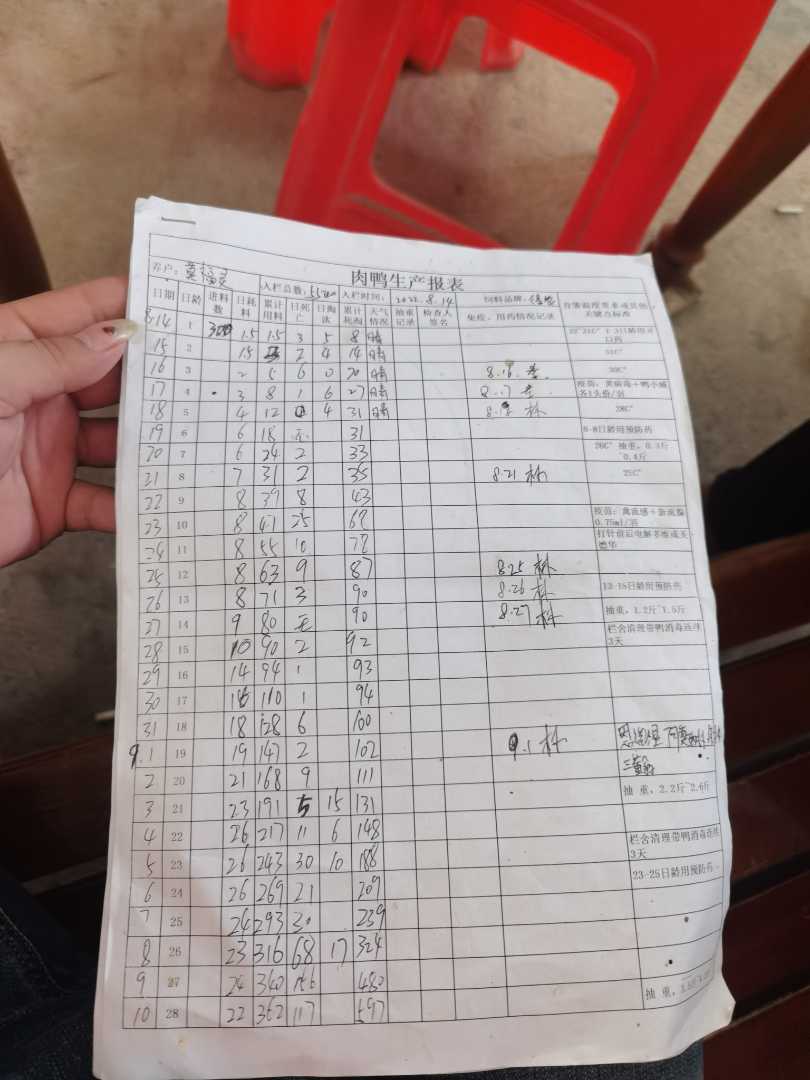 肉鸭生产报表
养户: 入栏总数: 入栏时间: 2022.8.14 饲料品牌:
日期 日龄 进料数 日耗料 累计用料 日死亡 日淘汰 累计死淘 天气情况 抽重记录 检查人签名 免疫、用药情况记录
8.14 1 300 1.5 1.5 3 5 8 晴
15 2 1.5 2 4 14 晴 31C°
16 3 2 5 6 0 20 晴 8.16 30C°
17 4 3 8 1 6 27 晴 8.17 疫苗:黄病毒+鸭小减各1头份/羽
18 5 4 12 4 31 晴 8.18 林 28C°
19 6 6 18 无 31 6-8日龄用预防药
20 7 6 24 2 33 26C° 抽重,0.3斤~0.4斤
21 8 7 31 2 35 8.21 林 25C°
22 9 8 39 8 43
23 10 8 47 25 68 疫苗:禽流感+新流腺0.75ml/羽
24 11 8 55 10 78
25 12 8 63 9 87 8.25 林
26 13 8 71 3 90 8.26 林 13-15日龄用预防药
27 14 9 80 无 90 8.27 林 抽重,1.2斤~1.5斤
28 15 10 90 2 92 栏舍清理带鸭消毒连续3天
29 16 14 94 1 93
30 17 16 110 1 94
31 18 18 128 6 100
9.1 19 19 147 2 102 9.1 林
2 20 21 168 9 111
3 21 23 191 5 15 131 抽重,2.2斤~2.6斤
4 22 26 217 11 6 148
5 23 26 243 30 10 188 栏舍清理带鸭消毒连续3天
6 24 26 269 21 209 23-25日龄用预防药
7 25 24 293 30 239
8 26 23 316 68 17 324
9 27 24 340 156 480
10 28 22 362 117 597 抽重,